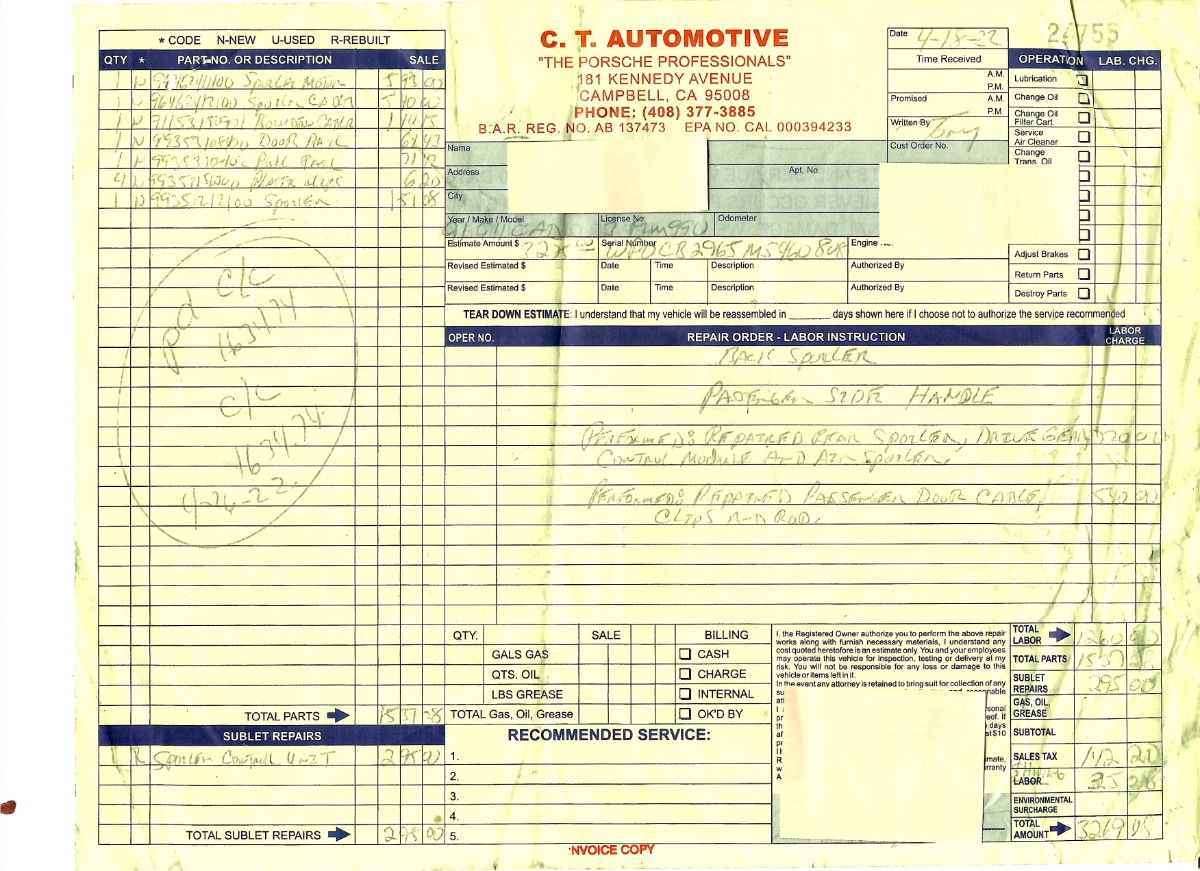 * CODE N-NEW U-USED R-REBUILT
QTY * PART-NO. OR DESCRIPTION SALE
1 N SPOILER MOTOR 593 00
1 N SPOILER CABLE 540 00
1 N BOWDEN CABLE 114 15
1 N DOOR
1 N
4 N PLASTIC CLIPS 6 20
1 N SPOILER 151 08
pd C/C
163474
C/C
163474
4-26-22
TOTAL PARTS 1557 28
SUBLET REPAIRS
1 R SPOILER CONTROL UNIT 295 00
TOTAL SUBLET REPAIRS 295 00
C. T. AUTOMOTIVE
"THE PORSCHE PROFESSIONALS"
181 KENNEDY AVENUE
CAMPBELL, CA 95008
PHONE: (408) 377-3885
B.A.R. REG. NO. AB 137473 EPA NO. CAL 000394233
Date 4-18-22
24755
Time Received
A.M.
P.M.
Promised A.M.
P.M.
Written By Tony
Cust Order No.
Name
Address Apt. No.
City
Year / Make / Model License No Odometer
Estimate Amount $ Serial Number WP0CB2965MS460808 Engine
Revised Estimated $ Date Time Description Authorized By
Revised Estimated $ Date Time Description Authorized By
OPERATION LAB. CHG.
Lubrication
Change Oil
Change Oil
Filter Cart.
Service
Air Cleaner
Change
Trans. Oil
Adjust Brakes
Return Parts
Destroy Parts
TEAR DOWN ESTIMATE: I understand that my vehicle will be reassembled in ______ days shown here if I choose not to authorize the service recommended
OPER NO. REPAIR ORDER - LABOR INSTRUCTION LABOR
CHARGE
BACK SPOILER
PASSENGER SIDE HANDLE
PERFORMED: REPAIRED REAR SPOILER, DRIVE GEAR, 720 00
CONTROL MODULE AND AIR SPOILER.
PERFORMED: REPAIRED PASSENGER DOOR CABLE, 540 00
CLIPS AND ROD.
QTY. SALE BILLING
GALS GAS CASH
QTS. OIL CHARGE
LBS GREASE INTERNAL
TOTAL Gas, Oil, Grease OK'D BY
RECOMMENDED SERVICE:
1.
2.
3.
4.
5.
I, the Registered Owner authorize you to perform the above repair
works along with furnish necessary materials, I understand any
cost quoted heretofore is an estimate only. You and your employees
may operate this vehicle for inspection, testing or delivery at my
risk. You will not be responsible for any loss or damage to this
vehicle or items left in it.
In the event any attorney is retained to bring suit for collection of any
TOTAL
LABOR 1260 00
TOTAL PARTS 1557 28
SUBLET
REPAIRS 295 00
GAS, OIL,
GREASE
SUBTOTAL
SALES TAX 142 20
LABOR
ENVIRONMENTAL
SURCHARGE
TOTAL
AMOUNT 3269
INVOICE COPY